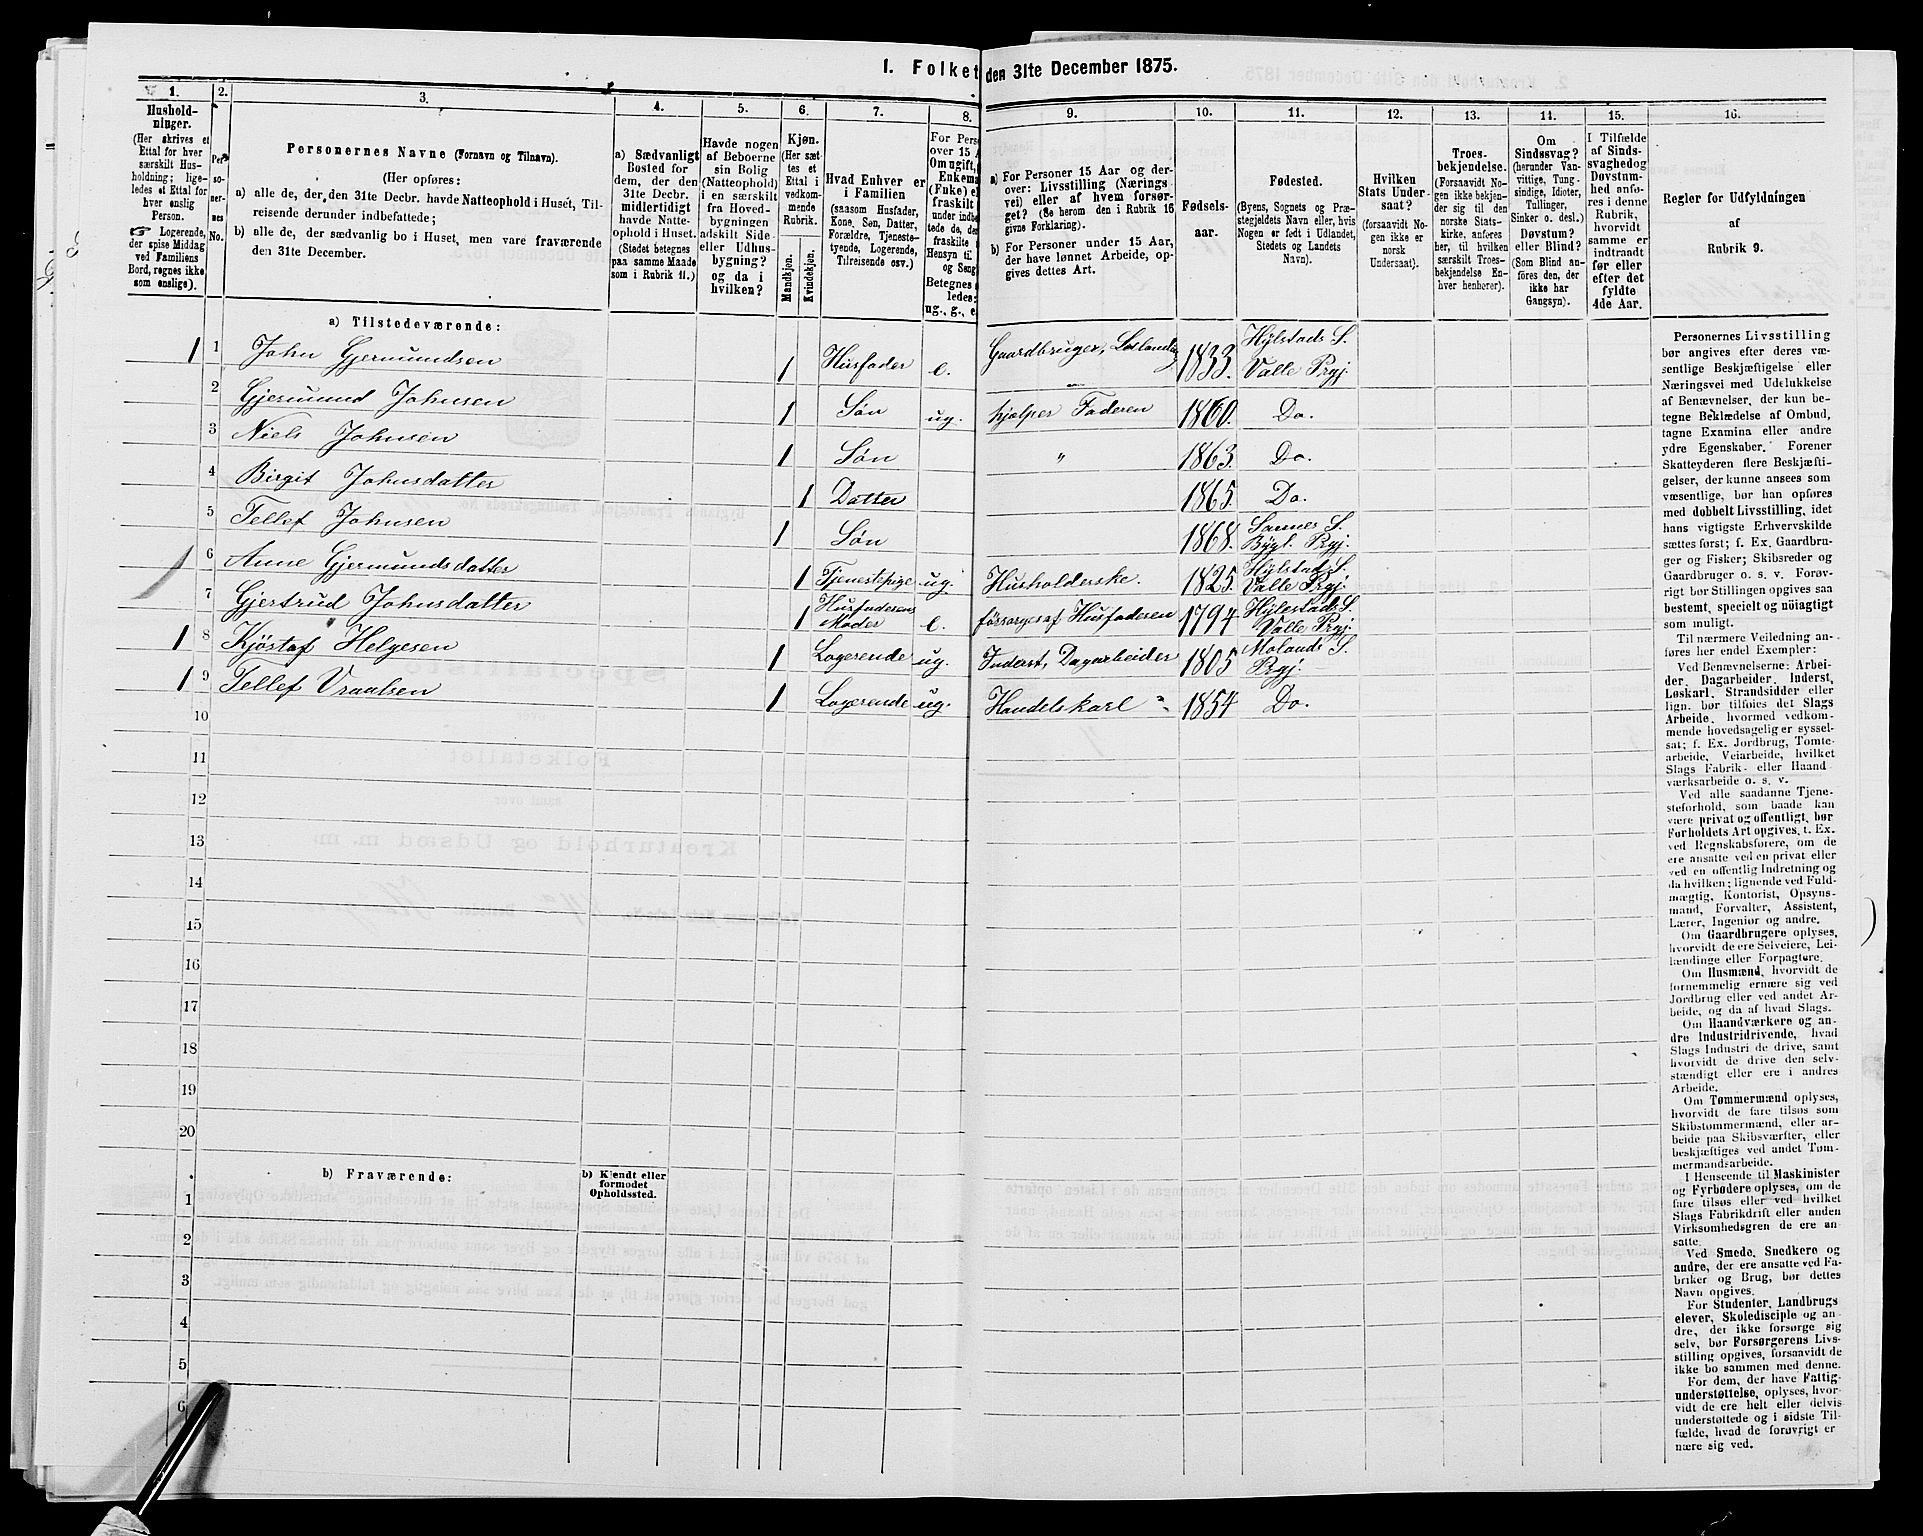 1. Folket den 31te December 1875.
1. 2. 3. 4. 5. 6. 7. 8. 9. 10. 11. 12. 13. 14. 15. 16.
Hushold-
ninger.
(Her skrives et
Ettal for hver
særskilt Hus-
holdning; lige-
ledes et Ettal for
hver enslig
Person.
☞ Logerende,
der spise Middag
ved Familiens
Bord, regnes ikke
som enslige).
Per-
so-
ner-
nes
No.
Personernes Navne (Fornavn og Tilnavn).
(Her opføres:
a) alle de, der den 31te Decbr. havde Natteophold i Huset, Til-
reisende derunder indbefattede;
b) alle de, der sædvanlig bo i Huset, men vare fraværende
den 31te December.
a) Sædvanligt
Bosted for
dem, der den
31te Decbr.
midlertidigt
havde Natte-
ophold i Huset.
(Stedet betegnes
paa samme Maade
som i Rubrik 11.)
Havde nogen
af Beboerne
sin Bolig
(Natteophold)
i en særskilt
fra Hoved-
bygningen
adskilt Side-
eller Udhus-
bygning?
og da i
hvilken?
Kjøn.
(Her sæt-
tes et
Ettal i
vedkom-
mende
Rubrik.
Mandkjøn.
Kvindekjøn.
Hvad Enhver er
i Familien
(saasom Husfader,
Kone, Søn, Datter,
Forældre, Tjeneste-
tyende, Logerende,
Tilreisende osv.).
For Perso
over 15 A
Omgift,
Enkema
(Fuke) el
under indbe
tede de, der
fraskilte
Hensyn til
og Seng
Betegnes
ledes:
ug., g., e.
a) For Personer 15 Aar og der-
over: Livsstilling (Nærings-
vei) eller af hvem forsør-
get? (Se herom den i Rubrik 16
givne Forklaring).
b) For Personer under 15 Aar,
der have lønnet Arbeide, op-
gives dettes Art.
Fødsels-
aar.
Fødested.
(Byens, Sognets og Præ-
stegjeldets Navn eller, hvis
Nogen er født i Udlandet,
Stedets og Landets
Navn).
Hvilken
Stats Under-
saat?
(forsaavidt No-
gen ikke er
norsk
Undersaat).
Troes-
bekjendelse.
(Forsaavidt No-
gen ikke bekjen-
der sig til den
norske Stats-
kirke, anføres
her, til hvilken
særskilt Troes-
bekjendelse En-
hver henhører).
Om
Sindssvag?
(herunder Van-
vittige, Tung-
sindige, Idioter,
Tullinger,
Sinker o. desl.)
Døvstum?
eller Blind?
(Som Blind an-
føres den, der
ikke har
Gangsyn).
I Tilfælde
af Sinds-
svaghed og
Døvstum-
hed anfø-
res i denne
Rubrik,
hvorvidt
samme er
indtraadt
før eller
efter det
fyldte
4de Aar.
Regler for Udfyldningen
af
Rubrik 9.
a) Tilstedeværende:
1 1 John Gjermundsen 1 Husfader e. Gaardbruger, Leilændig 1833. Hylstads S. Valle Prgj.
2 Gjermund Johnsen 1 Søn ug. hjælper Faderen 1860. Do.
3 Niels Johnsen 1 Søn " 1863. Do.
4 Birgit Johnsdatter 1 Datter 1865. Do.
5 Tellef Johnsen 1 Søn 1868. Sannes S. Bygl. Prgj.
1 6 Anne Gjermundsdatter 1 Tjenestepige ug. Husholderske. 1825. Hylstads S. Valle Prgj.
7 Gjertrud Johnsdatter 1 Husfaderens Moder e. forsørges af Husfaderen 1794 Hylestads S. Valle Prgj.
1 8 Kjöstaf Helgesen 1 Logerende ug. Inderst, Dagarbeider 1805 Molands S. Prgj.
1 9 Tellef Vraalsen 1 Logerende ug. Handelskarl 1854 Do.
10
11
12
13
14
15
16
17
18
19
20
b) Fraværende:
b) Kjendt eller
formodet
Opholdssted.
1
2
3
4
5
6
Personernes Livsstilling
bør angives efter deres væ-
sentlige Beskjæftigelse eller
Næringsvei med Udelukkelse
af Benævnelser, der kun be-
tegne Beklædelse af Ombud,
tagne Examina eller andre
ydre Egenskaber. Forener
Skatteyderen flere Beskjæfti-
gelser, der kunne ansees som
væsentlige, bør han opføres
med dobbelt Livsstilling, idet
hans vigtigste Erhvervskilde
sættes først; f. Ex. Gaardbru-
ger og Fisker; Skibsreder og
Gaardbruger o. s. v. Forøv-
rigt bør Stillingen opgives saa
bestemt, specielt og nøiagtig
som muligt.
Til nærmere Veiledning an-
føres her endel Exempler:
Ved Benævnelserne: Arbei-
der, Dagarbeider, Inderst,
Løskarl, Strandsidder eller
lign. bør tilføies det Slags
Arbeide, hvormed vedkom-
mende hovedsagelig er syssel-
sat; f. Ex. Jordbrug, Tomte-
arbeide, Veiarbeide, hvilket
Slags Fabrik- eller Haand-
værksarbeide o. s. v.
Ved alle saadanne Tjene-
steforhold, som baade kan
være privat og offentligt, bør
Forholdets Art opgives, t. Ex.
ved Regnskabsførere, om de
ere ansatte ved en privat eller
ved en offentlig Indretning og
da hvilken; lignende ved Fuld-
mægtig, Kontorist, Opsyns-
mand, Forvalter, Assistent,
Lærer, Ingeniør og andre.
Om Gaardbrugere oplyses,
hvorvidt de ere Selveiere, Lei-
lændinge eller Forpagtere.
Om Husmænd, hvorvidt de
fornemmelig ernære sig ved
Jordbrug eller ved andet Ar-
beide, og da af hvad Slags.
Om Haandværkere og an-
dre Industridrivende, hvad
Slags Industri de drive, samt
hvorvidt de drive den selv-
stændigt eller ere i andres
Arbeide.
Om Tømmermænd oplyses,
hvorvidt de fare tilsøs som
Skibstømmermænd, eller ar-
beide paa Skibsværfter, eller
beskjæftiges ved andet Tøm-
mermandsarbeide.
I Henseende til Maskinister
og Fyrbødere oplyses, om de
fare tilsøs eller ved hvilket
Slags Fabrikdrift eller anden
Virksomhedsgren de ere an-
satte.
Ved Smede, Snedkere og
andre, der ere ansatte ved Fa-
briker og Brug, bør dettes
Navn opgives.
For Studenter, Landbrugs-
elever, Skoledisciple og an-
dre, der ikke forsørge sig
selv, bør Forsørgerens Livs-
stilling opgives, forsaavidt de
ikke bo sammen med denne.
For dem, der have Fattig-
understøttelse, oplyses, hvor-
vidt de ere helt eller delvis
understøttede og i sidste Til-
fælde, hvad de forøvrigt er-
nære sig ved.